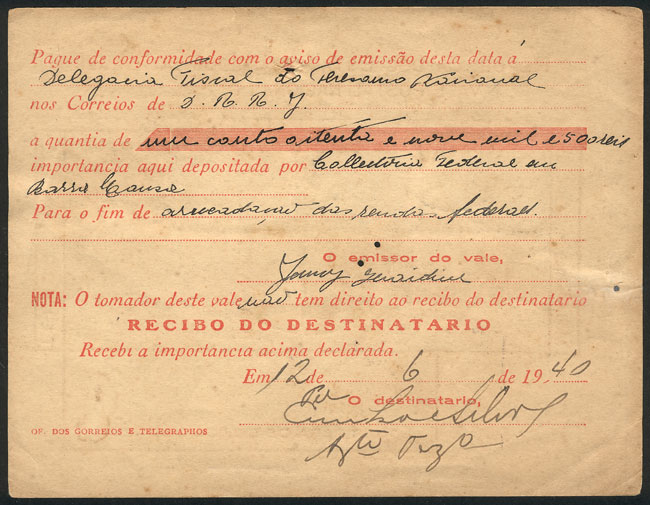 Pague de conformidade com o aviso de emissão desta data á
Delegacia Fiscal do Thesouro Nacional
nos Correios de D. R. R. J.
a quantia de um conto oitenta e nove mil e 500 reis
importancia aqui depositada por Collectoria Federal em
Barra Mansa
Para o fim de arrecadação das rendas federaes.
O emissor do vale,
NOTA: O tomador deste vale não tem direito ao recibo do destinatario
RECIBO DO DESTINATARIO
Recebi a importancia acima declarada.
Em 12 de 6 de 19 40
O destinatario,
Cunha e Silva
OF. DOS CORREIOS E TELEGRAPHOS